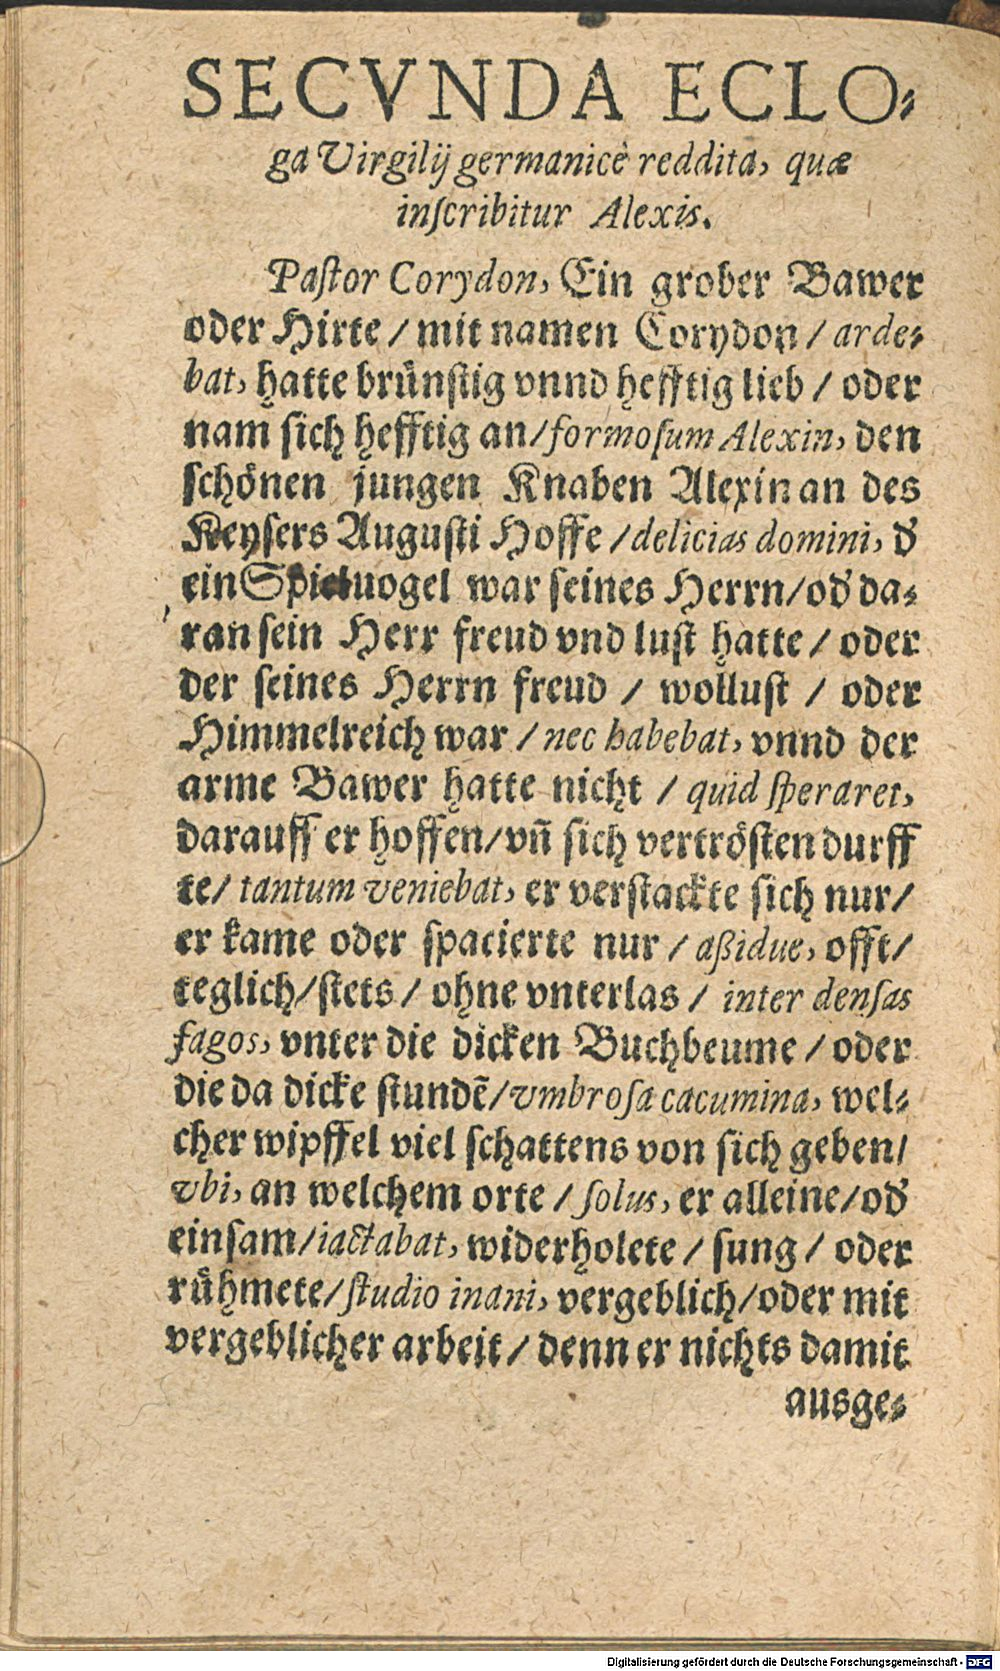 SECVNDA ECLO-
ga Virgilij germanicè reddita, quæ
inſcribitur Alexis.
Paſtor Corydon, Ein grober Bawer
oder Hirte / mit namen Corydon / arde-
bat, hatte brünſtig vnnd hefftig lieb / oder
nam ſich hefftig an / formoſum Alexin, den
ſchönen jungen Knaben Alexin an des
Keyſers Auguſti Hoffe / delicias domini, d̕
ein Spieluogel war ſeines Herrn / od̕ da-
ran ſein Herr freud vnd luſt hatte / oder
der ſeines Herrn freud / wolluſt / oder
Himmelreich war / nec habebat, vnnd der
arme Bawer hatte nicht / quid ſperaret,
darauff er hoffen / vñ ſich vertröſten durff
te / tantum veniebat, er verſtackte ſich nur /
er kame oder ſpacierte nur / aßidue, offt /
teglich / ſtets / ohne vnterlas / inter denſas
fagos, vnter die dicken Buchbeume / oder
die da dicke ſtundẽ / vmbroſa cacumina, wel-
cher wipffel viel ſchattens von ſich geben /
vbi, an welchem orte / ſolus, er alleine / od̕
einſam / iactabat, widerholete / ſung / oder
rühmete / ſtudio inani, vergeblich / oder mit
vergeblicher arbeit / denn er nichts damit
ausge-
Digitalisierung gefördert durch die Deutsche Forschungsgemeinschaft - DFG